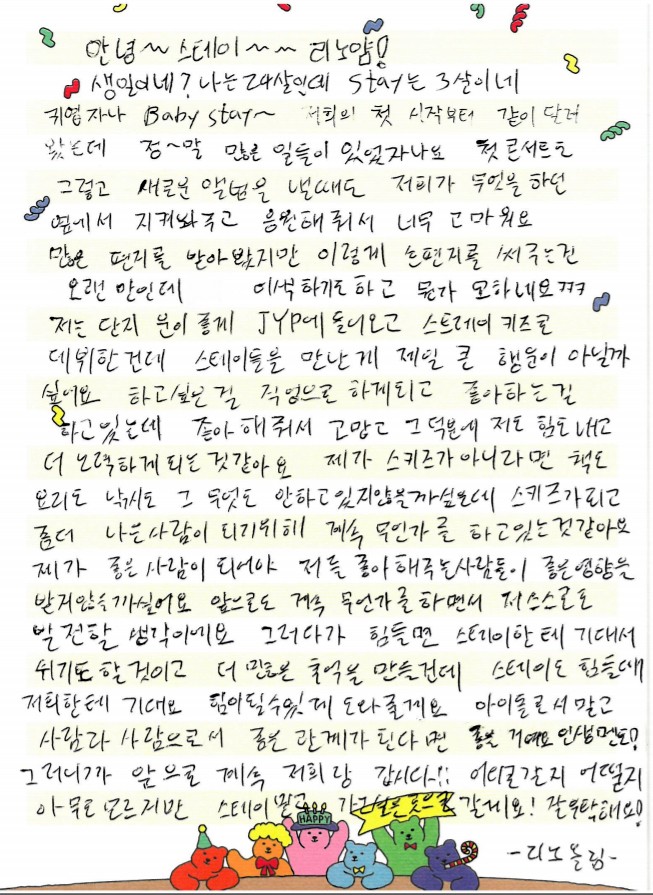 안녕~ 스테이~~ 리노얌!
생일이네? 나는 24살인데 stay는 3살이네
귀엽자나 Baby stay~ 저희의 첫 시작부터 같이 달려
왔는데 정~말 많은 일들이 있었자나요 첫 콘서트도
그렇고 새로운 앨범을 낼때도 저희가 무엇을 하던
옆에서 지켜봐주고 응원해줘서 너무 고마워요
많은 편지를 받아봤지만 이렇게 손편지를 써주는건
오랜만인데 어색하기도하고 뭔가 묘하네요ㅋㅋ
저는 단지 운이 좋게 JYP에 들어오고 스트레이 키즈로
데뷔한건데 스테이들을 만난게 제일 큰 행운이 아닐까
싶어요 하고싶은걸 직업으로 하게되고 좋아하는걸
하고있는데 좋아해줘서 고맙고 그 덕분에 저도 힘도내고
더 노력하게 되는것같아요 제가 스키즈가아니라면 책도
요리도 낚시도 그 무엇도 안하고있지않을까싶은데 스키즈가되고
좀더 나은사람이 되기위해 계속 무언가를 하고있는것같아요
제가 좋은사람이 되어야 저를 좋아해주는사람들이 좋은영향을
받지않을까싶어요 앞으로도 계속 무언가를하면서 저스스로도
발전할 생각이에요 그러다가 힘들면 스테이한테 기대서
쉬기도 할것이고 더 많은 추억을 만들건데 스테이도 힘들때
저희한테 기대요 힘이될수있게 도와줄게요 아이돌로서 말고
사람과 사람으로서 좋은 관계가 된다면 좋을거예요 인생멘토!
그러니까 앞으로 계속 저희랑 갑시다!! 어디로갈지 어떨지
아무도 모르지만 스테이 믿고 갈게요! 잘부탁해요!
HAPPY
-리노올림-